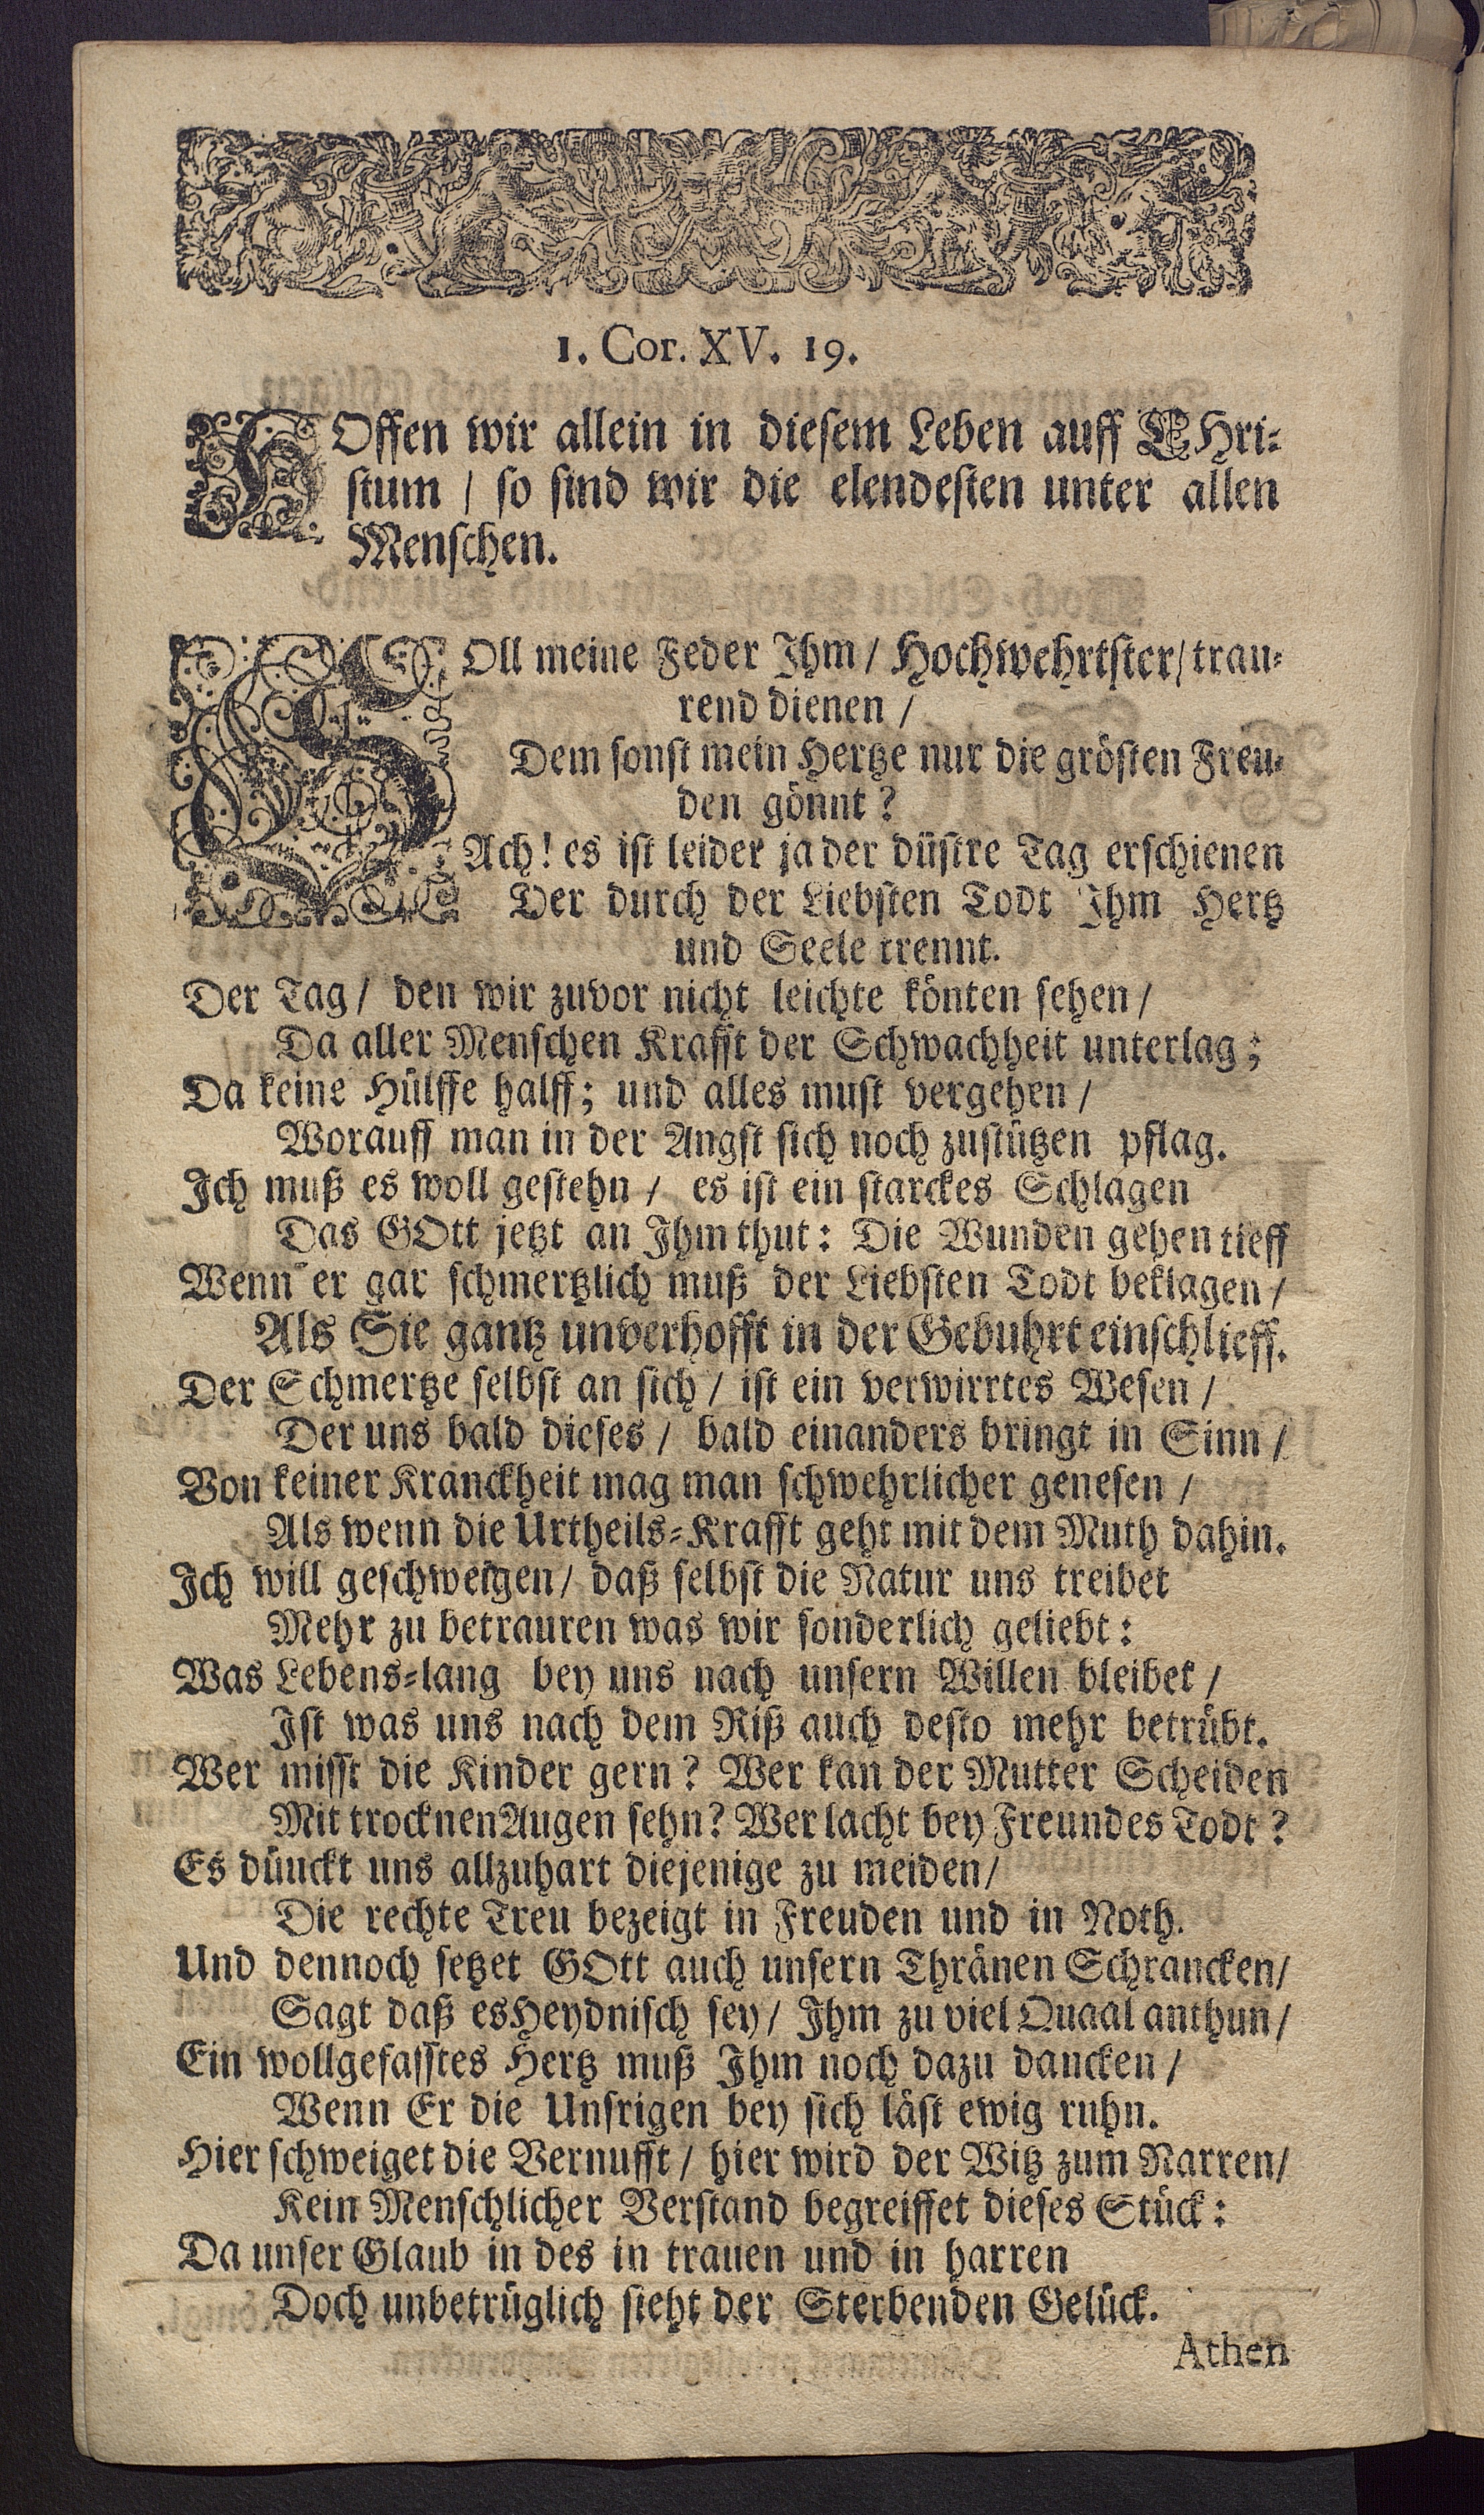 1. Cor. XV. 19.
HOffen wir allein in diesem Leben auff CHri-
stum / so sind wir die elendesten unter allen
Menschen.
SOll meine Feder Ihm / Hochwehrtster / trau-
rend dienen /
Dem sonst mein Hertze nur die grösten Freu-
den gönnt?
Ach! es ist leider ja der düstre Tag erschienen
Der durch der Liebsten Todt Ihm Hertz
und Seele trennt.
Der Tag / den wir zuvor nicht leichte könten sehen /
Da aller Menschen Krafft der Schwachheit unterlag;
Da keine Hülffe halff; und alles must vergehen /
Worauff man in der Angst sich noch zustützen pflag.
Ich muß es woll gestehn / es ist ein starckes Schlagen
Das GOtt jetzt an Ihm thut: Die Wunden gehen tieff
Wenn er gar schmertzlich muß der Liebsten Todt beklagen /
Als Sie gantz unverhofft in der Gebuhrt einschlieff.
Der Schmertze selbst an sich / ist ein verwirrtes Wesen /
Der uns bald dieses / bald einanders bringt in Sinn /
Von keiner Kranckheit mag man schwehrlicher genesen /
Als wenn die Urtheils-Krafft geht mit dem Muth dahin.
Ich will geschweigen / daß selbst die Natur uns treibet
Mehr zu betrauren was wir sonderlich geliebt:
Was Lebens-lang bey uns nach unsern Willen bleibet /
Ist was uns nach dem Riß auch desto mehr betrübt.
Wer misst die Kinder gern? Wer kan der Mutter Scheiden
Mit trocknen Augen sehn? Wer lacht bey Freundes Todt?
Es dünckt uns allzuhart diejenige zu meiden /
Die rechte Treu bezeigt in Freuden und in Noth.
Und dennoch setzet GOtt auch unsern Thränen Schrancken /
Sagt daß es Heydnisch sey / Ihm zu viel Quaal anthun /
Ein wollgefasstes Hertz muß Ihm noch dazu dancken /
Wenn Er die Unsrigen bey sich läst ewig ruhn.
Hier schweiget die Vernufft / hier wird der Witz zum Narren /
Kein Menschlicher Verstand begreiffet dieses Stück:
Da unser Glaub in des in trauen und in harren
Doch unbetrüglich sieht der Sterbenden Gelück.
Athen